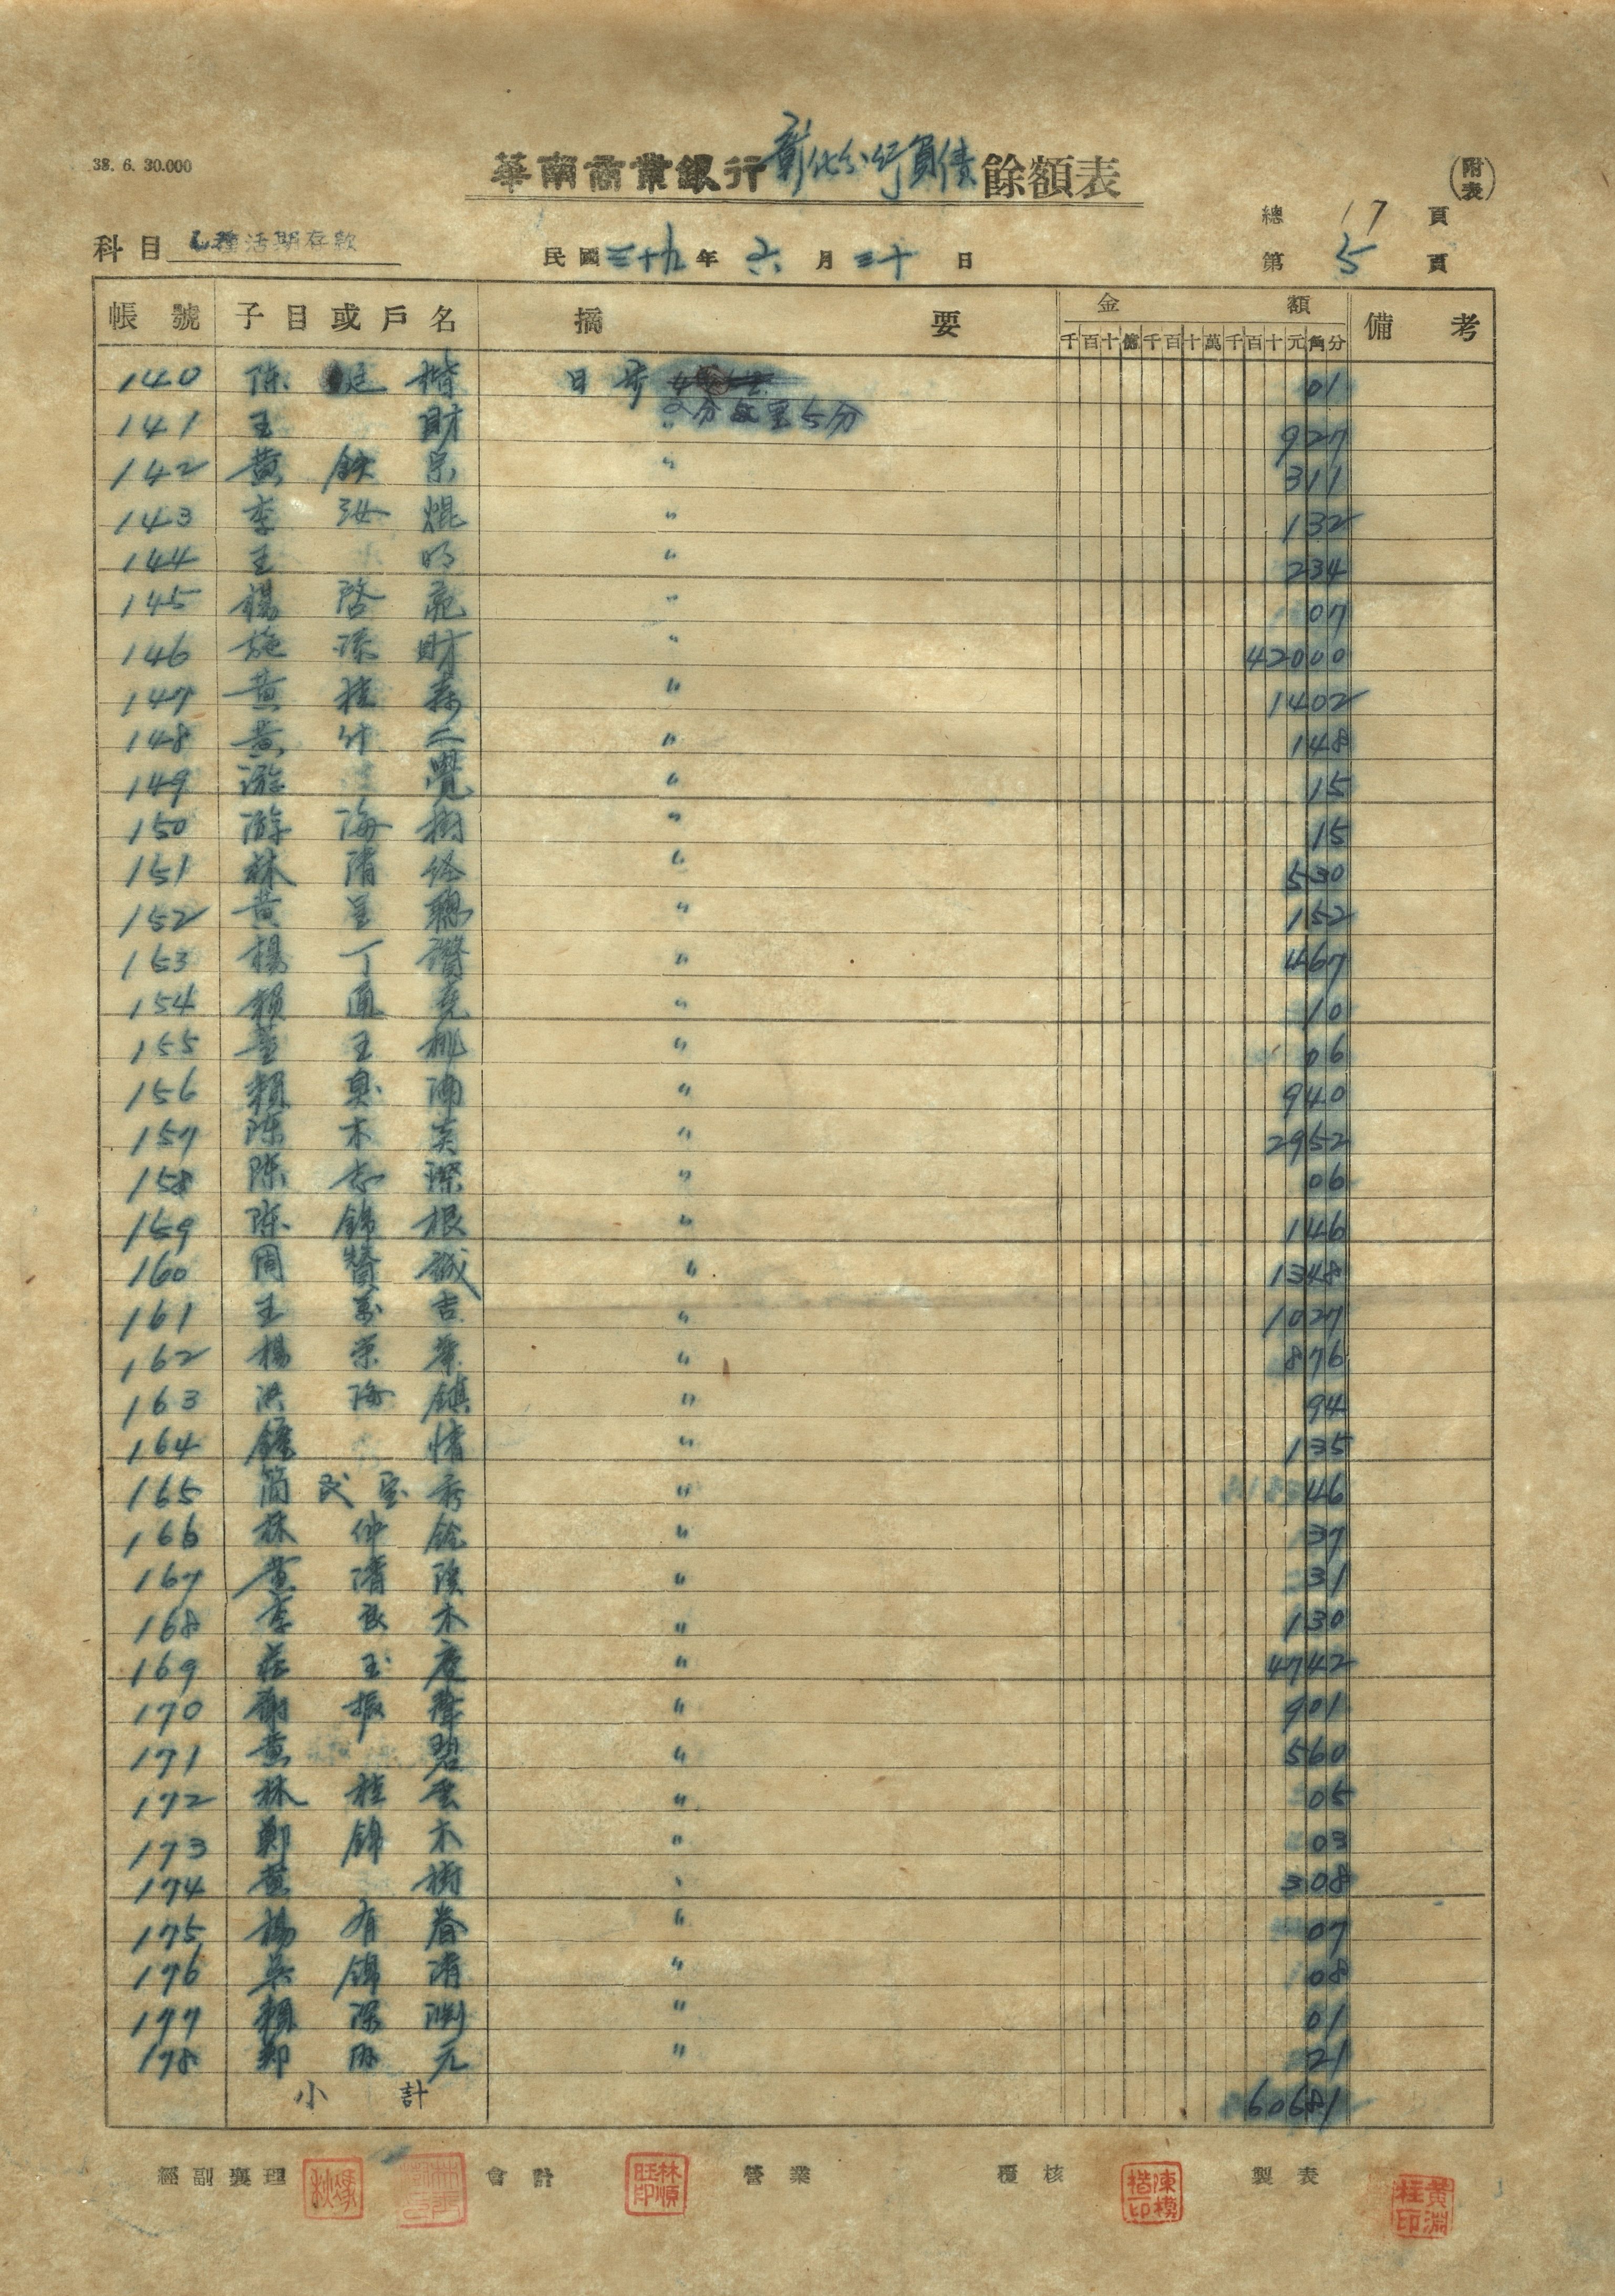 38. 6. 30.000
華南商業銀行彰化分行負債餘額表
(附表)
總 17 頁
科目 乙種活期存款 民國三十九年六月三十日 第 5 頁
帳號 子目或戶名 摘要 金額 備考
千百十億千百十萬千百十元角分
140 陳 楷 日步 01
2分 至5分
141 王 財 〃 927
142 黃 〃 311
143 李 汝焜 〃 132
144 王 明 〃 234
145 楊啓 〃 07
146 施 財 〃 42000
147 黃桂森 〃 1402
148 黃 〃 148
149 游 覺 〃 15
150 游海樹 〃 15
151 林清 〃 530
152 黃 聰 〃 152
153 楊丁讚 〃 467
154 賴 〃 10
155 王桃 〃 06
156 賴 〃 940
157 陳木 〃 2952
158 陳 深 〃 06
159 陳錦根 〃 146
160 周贊誠 〃 1348
161 王萬吉 〃 1027
162 楊榮華 〃 876
163 洪海鎮 〃 94
164 〃 135
165 簡 秀 〃 46
166 林仲 〃 37
167 黃清 〃 31
168 李良木 〃 130
169 莊玉慶 〃 4742
170 謝振 〃 901
171 黃 碧 〃 560
172 林桂雲 〃 05
173 鄭錦木 〃 03
174 黃 樹 〃 308
175 楊有春 〃 07
176 吳錦清 〃 08
177 賴深淵 〃 01
178 鄭 元 〃 21
小計 60681
經副襄理 會計 營業 覆核 製表
林順旺印
陳模楷印
黃淵柱印